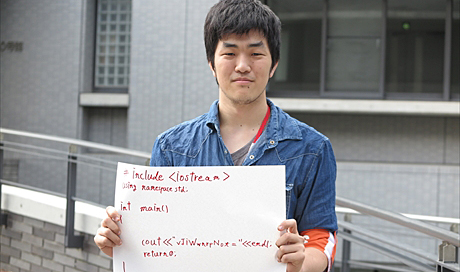 # include <iostream>
using namespace std;
int main()
cout<<"vJiWwnrpNot="<<endl;
return 0;